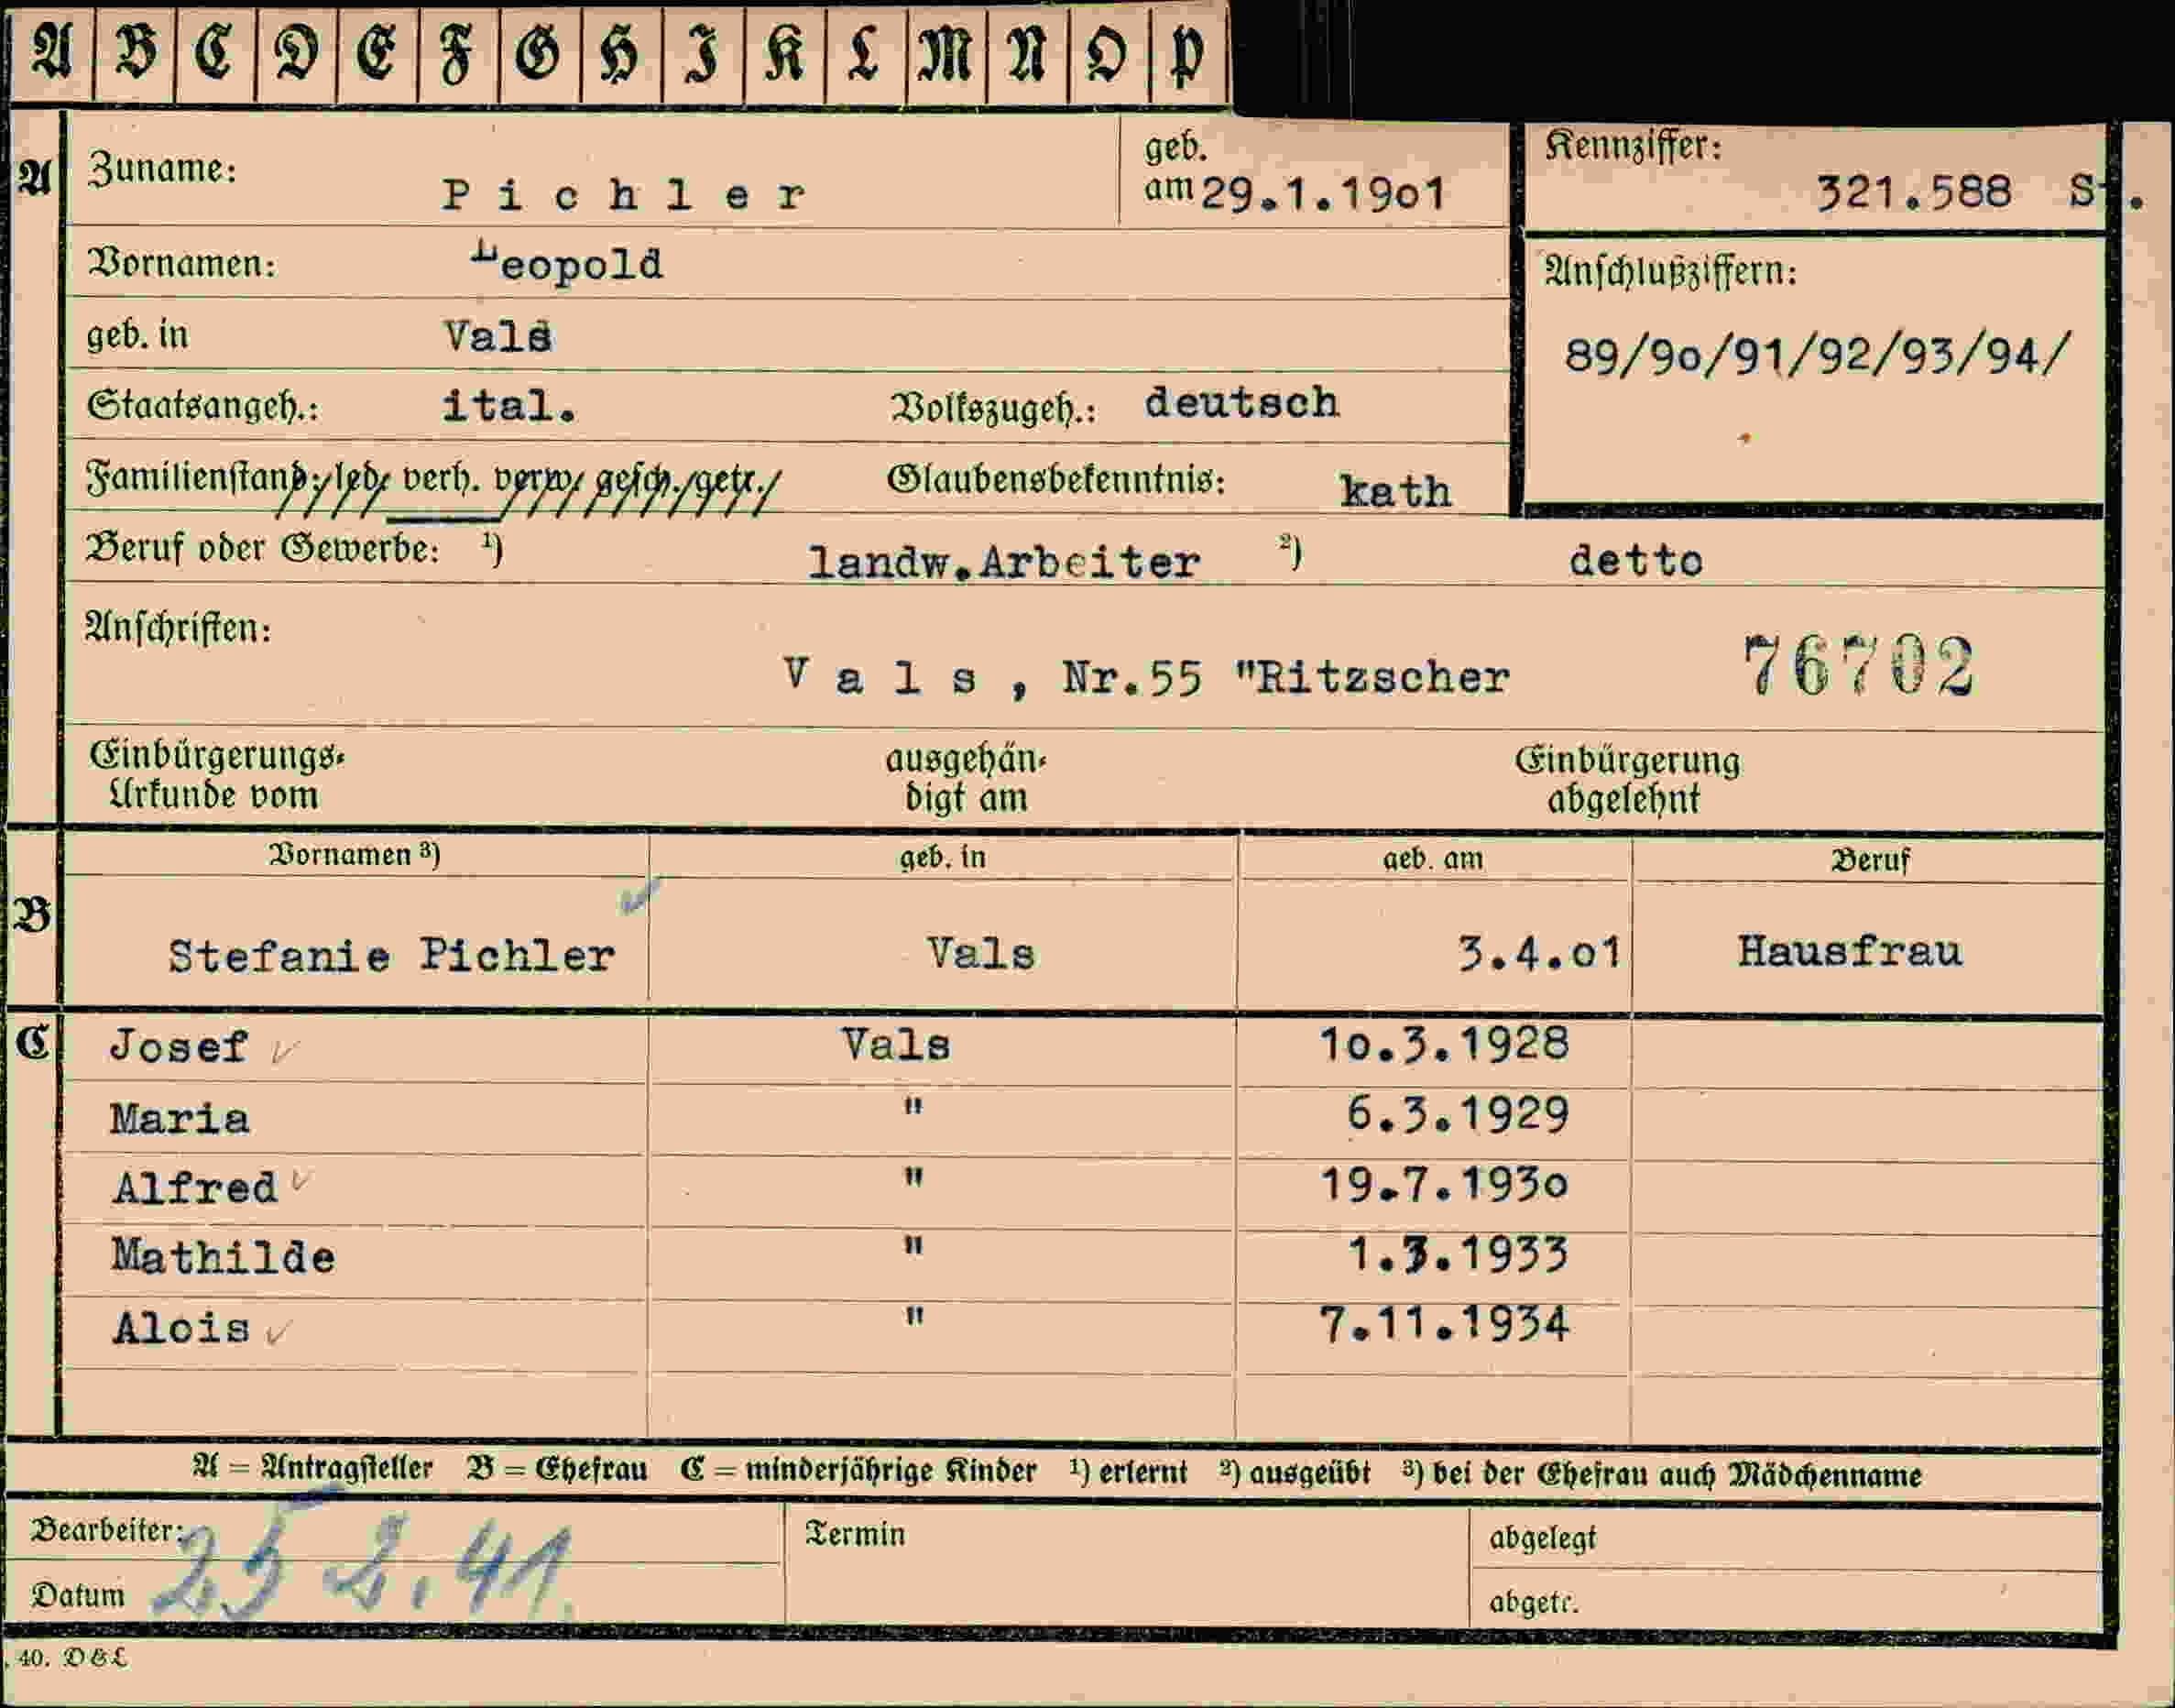 A B C D E F G H I K L M N O P
A Zuname: Pichler geb. am 29.1.19o1 Kennziffer: 321.588 St.
Vornamen: Leopold Anschlußziffern:
geb. in Vals 89/9o/91/92/93/94/
Staatsangeh.: ital. Volkszugeh.: deutsch
Familienstand: led. verh. verw. gesch. getr. Glaubensbekenntnis: kath
Beruf oder Gewerbe: ¹) landw.Arbeiter ²) detto
Anschriften:
Vals, Nr.55 "Ritzscher 76702
Einbürgerungs- ausgehän- Einbürgerung
Urkunde vom digt am abgelehnt
Vornamen ³) geb. in geb. am Beruf
B Stefanie Pichler Vals 3.4.o1 Hausfrau
C Josef Vals 1o.3.1928
Maria " 6.3.1929
Alfred " 19.7.193o
Mathilde " 1.3.1933
Alois " 7.11.1934
A = Antragsteller B = Ehefrau C = minderjährige Kinder ¹) erlernt ²) ausgeübt ³) bei der Ehefrau auch Mädchenname
Bearbeiter: Termin abgelegt
Datum 25 2.41. abgetr.
40. D & L